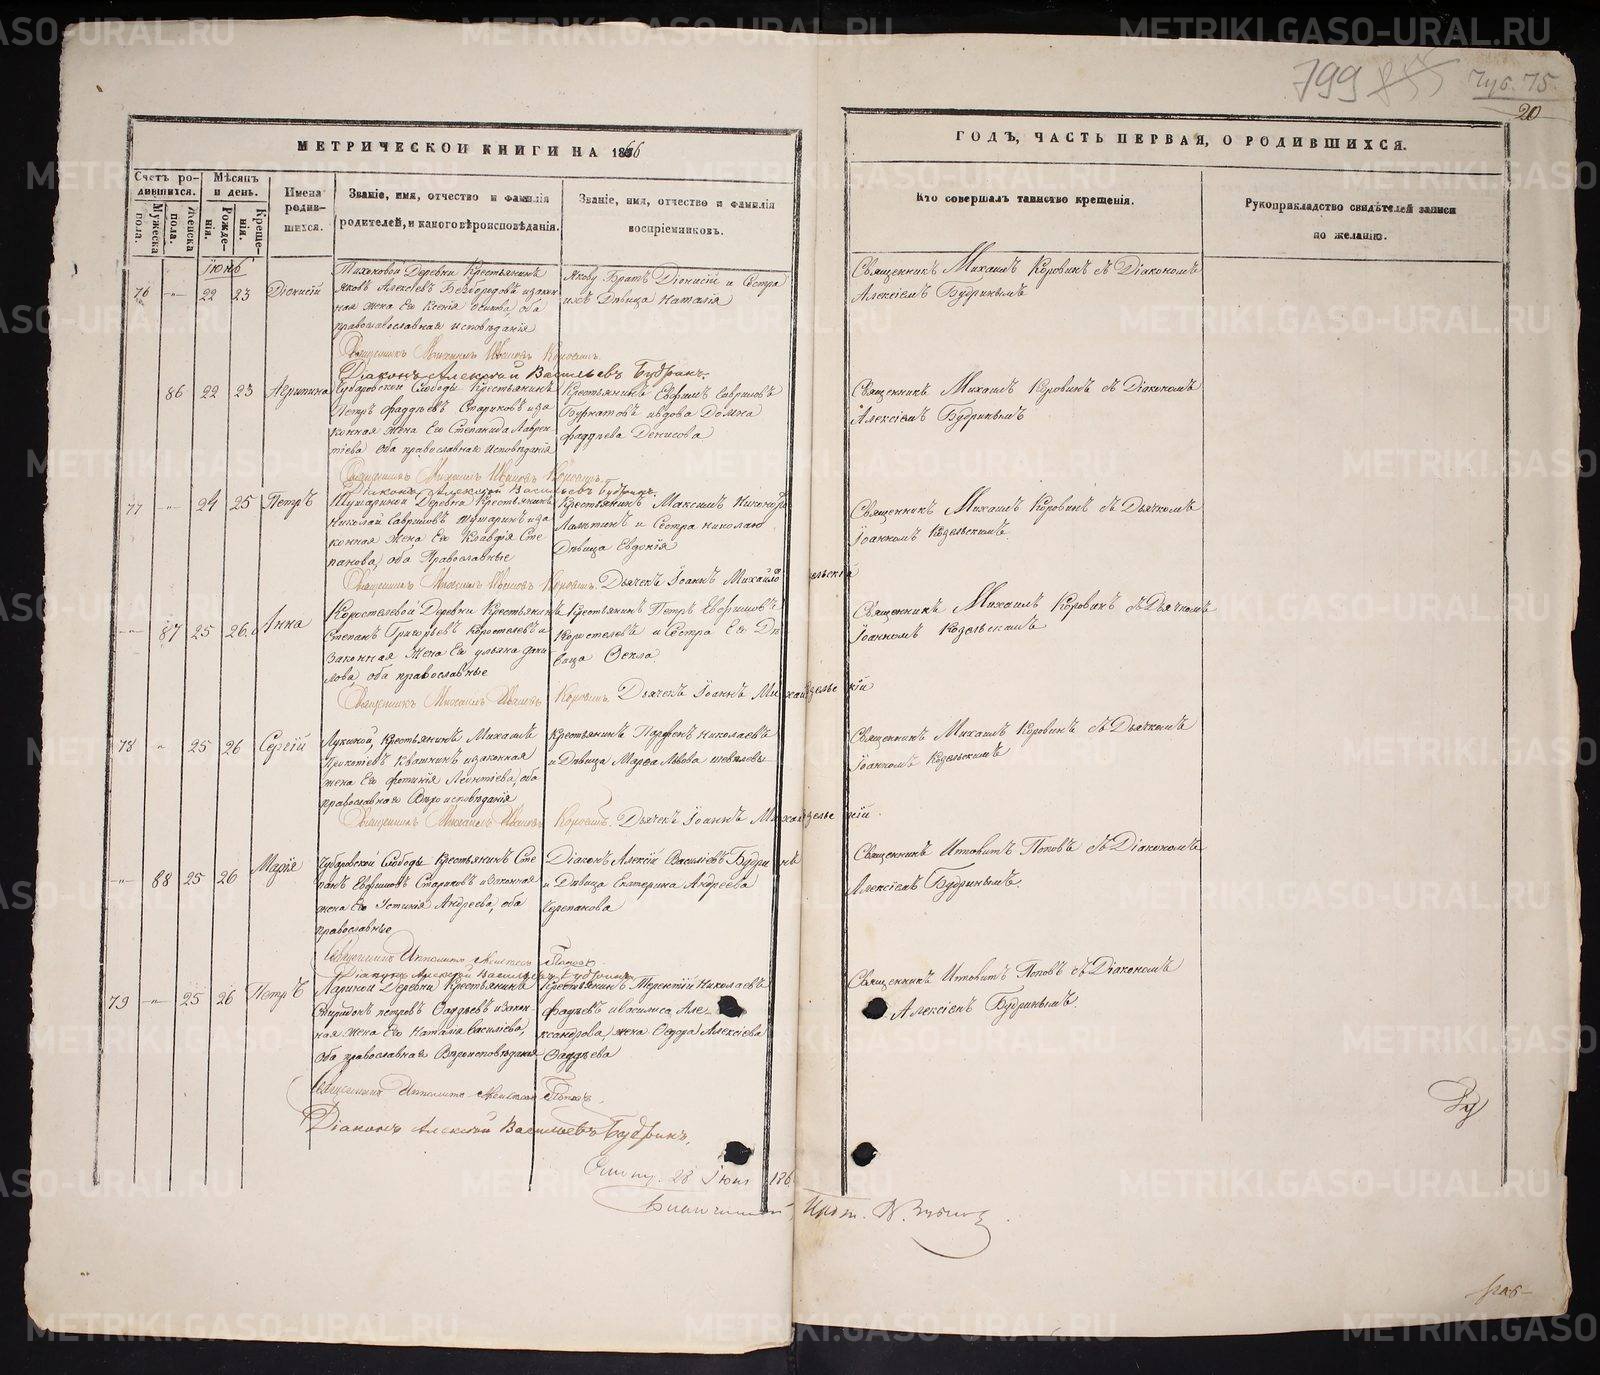 799
Чуб. 75
20
МЕТРИЧЕСКОЙ КНИГИ НА 1866
ГОДЪ, ЧАСТЬ ПЕРВАЯ, О РОДИВШИХСЯ.
Счетъ родившихся.
Мужеска пола.
Женска пола.
Мѣсяцъ и день.
Рожденія.
Крещенія.
Имена родившихся.
Званіе, имя, отчество и фамилія
родителей, и какого вѣроисповѣданія.
Званіе, имя, отчество и фамилія
воспріемниковъ.
Кто совершалъ таинство крещенія.
Рукоприкладство свидѣтелей записи
по желанію.
Іюнь
76 -"- 22 23 Діонисій
Тихоновой Деревни Крестьянинъ
Яковъ Алексѣевъ Безбородовъ и закон
ная жена Его Ксенія Осипова, оба
православнаго исповѣданія
Якову Братъ Діонисій и Сестра
ихъ Дѣвица Наталія
Священникъ Михаилъ Коровинъ съ Діакономъ
Алексіемъ Будринымъ
Священникъ Михаилъ Ивановъ Коровинъ.
Діаконъ Алексѣй Васильевъ Будринъ.
86 22 23
Чубаровской Слободы Крестьянинъ
Петръ Фаддѣевъ Стариковъ и за
конная жена Его Степанида Лаврен
тіева оба православнаго исповѣданія
Крестьянинъ Евфимъ Гавриловъ
Бурнатовъ и вдова Домна
Фаддѣева Денисова
Священникъ Михаилъ Коровинъ съ Діакономъ
Алексіемъ Будринымъ
Священникъ Михаилъ Ивановъ Коровинъ.
Діаконъ Алексѣй Васильевъ Будринъ.
77 -"- 24 25 Петръ
Шушариной Деревни Крестьянинъ
Николай Гавриловъ Шушаринъ и за
конная жена Его Клавдія Сте
панова, оба Православные
Крестьянинъ Максимъ Никоноровъ
Лапшинъ и Сестра Николаю
Дѣвица Евдокія
Священникъ Михаилъ Коровинъ съ Дьячкомъ
Іоанномъ Козельскимъ
Священникъ Михаилъ Ивановъ Коровинъ. Дьячекъ Іоаннъ Михайло
-"- 87 25 26 Анна
Коростелевой Деревни Крестьянинъ
Степанъ Григорьевъ Коростелевъ и
Законная жена Его Ульяна Дани
лова, оба православные
Крестьянинъ Петръ Евфимовъ
Коростелевъ и Сестра Его Дѣ
вица Фекла
Священникъ Михаилъ Коровинъ съ Дьячкомъ
Іоанномъ Козельскимъ
Священникъ Михаилъ Ивановъ Коровинъ. Дьячекъ Іоаннъ
78 " 25 26 Сергій
Лукиной, Крестьянинъ Михаилъ
Прокопіевъ Квашнинъ и законная
жена Его Фотинія Леонтіева, оба
православнаго Вѣроисповѣданія
Крестьянинъ Парфенъ Николаевъ
и Дѣвица Марѳа Львова Шевелевы
Священникъ Михаилъ Коровинъ съ Дьячкомъ
Іоанномъ Козельскимъ
Священникъ Михаилъ Ивановъ Коровинъ. Дьячекъ Іоаннъ
-"- 88 25 26 Марія
Чубаровской Слободы Крестьянинъ Сте
панъ Евфимовъ Стариковъ и законная
жена Его Устинія Андреева, оба
православные
Діаконъ Алексій Василіевъ Будринъ
и Дѣвица Екатерина Андреева
Черепанова
Священникъ Иполитъ Поповъ съ Діакономъ
Алексіемъ Будринымъ.
Священникъ Ипполитъ Поповъ
Діаконъ Алексѣй Васильевъ Будринъ
79 -"- 25 26 Петръ
Лариной Деревни Крестьянинъ
Спиридонъ Петровъ Фаддѣевъ и закон
ная жена Его Наталія Василіева,
оба православнаго Вѣроисповѣданія
Крестьянинъ Терентій Николаевъ
Фадѣевъ и Василиса Але
ксандрова, жена Ѳедора Алексіева
Фаддѣева
Священникъ Иполитъ Поповъ съ Діакономъ
Алексіемъ Будринымъ.
Священникъ Ипполитъ Поповъ.
Діаконъ Алексѣй Васильевъ Будринъ.
28 Іюня 186
METRIKI.GASO-URAL.RU